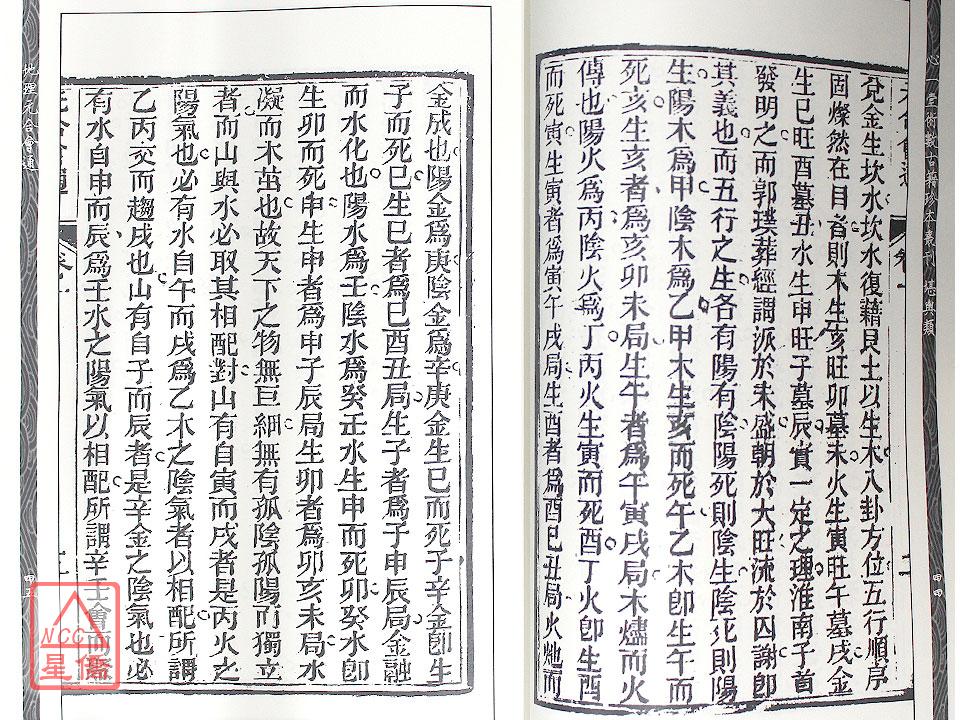 心一堂術數古籍珍本叢刊 堪輿類
四四
兌金生坎水坎水復藉艮土以生木八卦方位五行順序
固燦然在目者則木生亥旺卯墓未火生寅旺午墓戌金
生巳旺酉墓丑水生申旺子墓辰實一定之理淮南子首
發明之而郭璞葬經謂派於朱盛朝於大旺流於囚謝卽
其義也而五行之生各有陽有陰陽死則陰生陰死則陽
生陽木爲甲陰木爲乙甲木生亥而死午乙木卽生午而
死亥生亥者爲亥卯未局生午者爲午寅戌局木燼而火
傳也陽火爲丙陰火爲丁丙火生寅而死酉丁火卽生酉
而死寅生寅者爲寅午戌局生酉者爲酉巳丑局火灺而
金成也陽金爲庚陰金爲辛庚金生巳而死子辛金卽生
子而死巳生巳者爲巳酉丑局生子者爲子申辰局金融
而水化也陽水爲壬陰水爲癸壬水生申而死卯癸水卽
生卯而死申生申者爲申子辰局生卯者爲卯亥未局水
凝而木茁也故天下之物無巨細無有孤陰孤陽而獨立
者而山與水必取其相配對山有自寅而戌者是丙火之
陽氣也必有水自午而戌爲乙木之陰氣者以相配所謂
乙丙交而趨戌也山有自子而辰者是辛金之陰氣也必
有水自申而辰爲壬水之陽氣以相配所謂辛壬會而
地理元合會通
四五
NCC
星僑